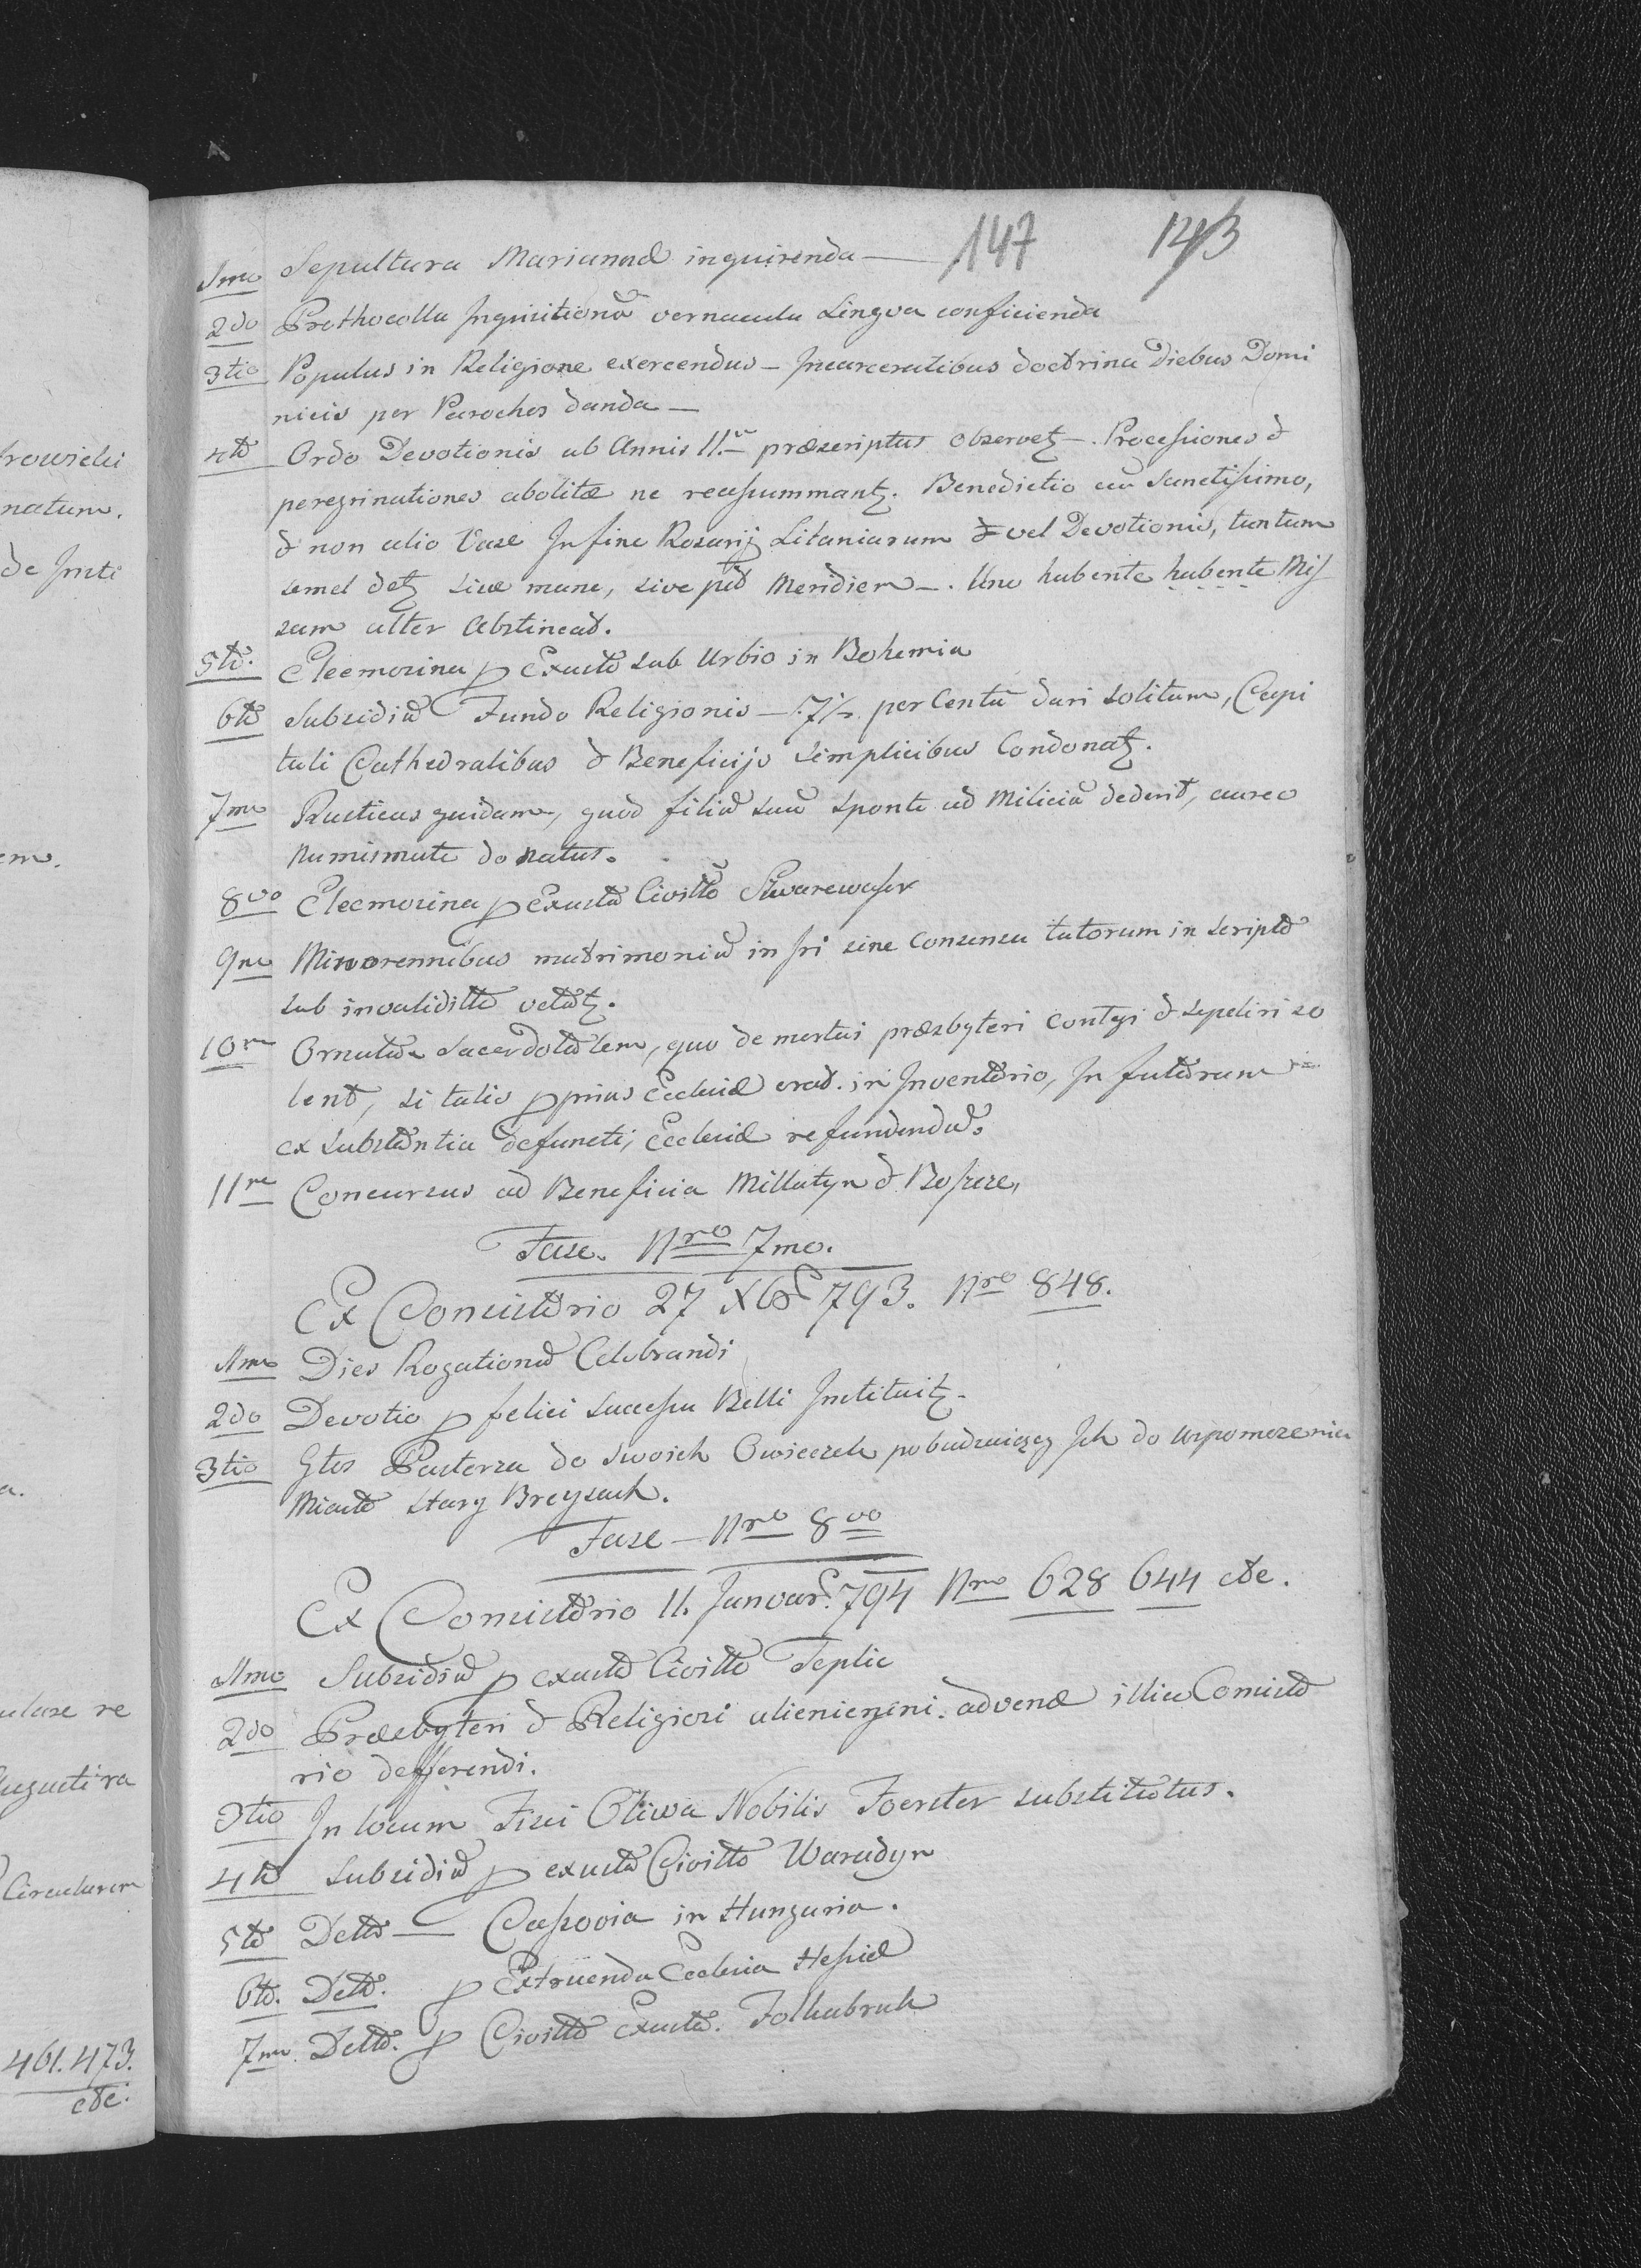 147 143
1mo Sepultura Mariannæ inquirenda —
2do Prothocolla Inquisitionũ vernacula Lingva conficienda
3tio Populus in Religione exercendus — Incarceratibus doctrina Diebus Domi
nicis per Parochos danda —
4to Ordo Devotionis ab Annis 11. præscriptus observetz —. Processiones &
peregrinationes abolitæ ne reassummantz. Benedictio cũ Sanctissimo,
& non alio Vase In fine Rosarij Litaniarum & vel Devotionis, tantum
semel detz sive mane, sive pst Meridiem —. Uno habente habente Mis
sam alter abstineat.
5to. Eleemosina p Exusto sub Urbio in Bohemia
6to Subsidiũ Fundo Religionis — 7½ per Centũ dari solitum, Capi
tuli Cathedralibus & Beneficijs simplicibus Condonatz.
7mo Rusticus quidam, quod filiũ suũ sponte ad Miliciã dederit, aureo
numismate donatus.
8vo Eleemosina p Exusta Civitte
9no Minorennibus matrimoniũ iniri sine Consensu tutorum in scripto
sub invaliditte vetatz.
10mo Ornatum Sacerdotalem, quo demortui præsbyteri contegi & sepeliri so
lent, si talis pprius Ecclesiæ erat in Inventario, In futurum
ex substantia defuncti, Ecclesiæ refundendũ.
11mo Concursus ad Beneficia Millatyn &
Fasc. Nro 7mo.
Ex Consistorio 27 Xbr 793. Nro 848.
1mo Dies Rogationũ Celebrandi
2do Devotio p felici successu Belli Instituitz.
3tio Głos Pasterza do swoich Owieczek pobudzaiący Ich do wspomożenia
Miasto Stary Breysach.
Fasc — Nro 8vo
Ex Consistorio 11. Januar. 794 Nro 628 644 etc.
1mo Subsidiũ p exusta Civitte Teplic
2do Præsbyteri & Religiosi alienigeni advenæ illico Consisto
rio defferendi.
3tio In locum Fisci Oliwa Nobilis Foerster substitutus.
4to Subsidiũ p exusta Civitte Waradyn
5to Detto — Cassovia in Hungaria.
6to. Detto. p Extruenda Ecclesia Hessiæ
7mo. Detto. p Civitte Exusta.
rowicki
natum.
de Insti
em.
a.
ulare re
Circularem
461. 473.
etc.